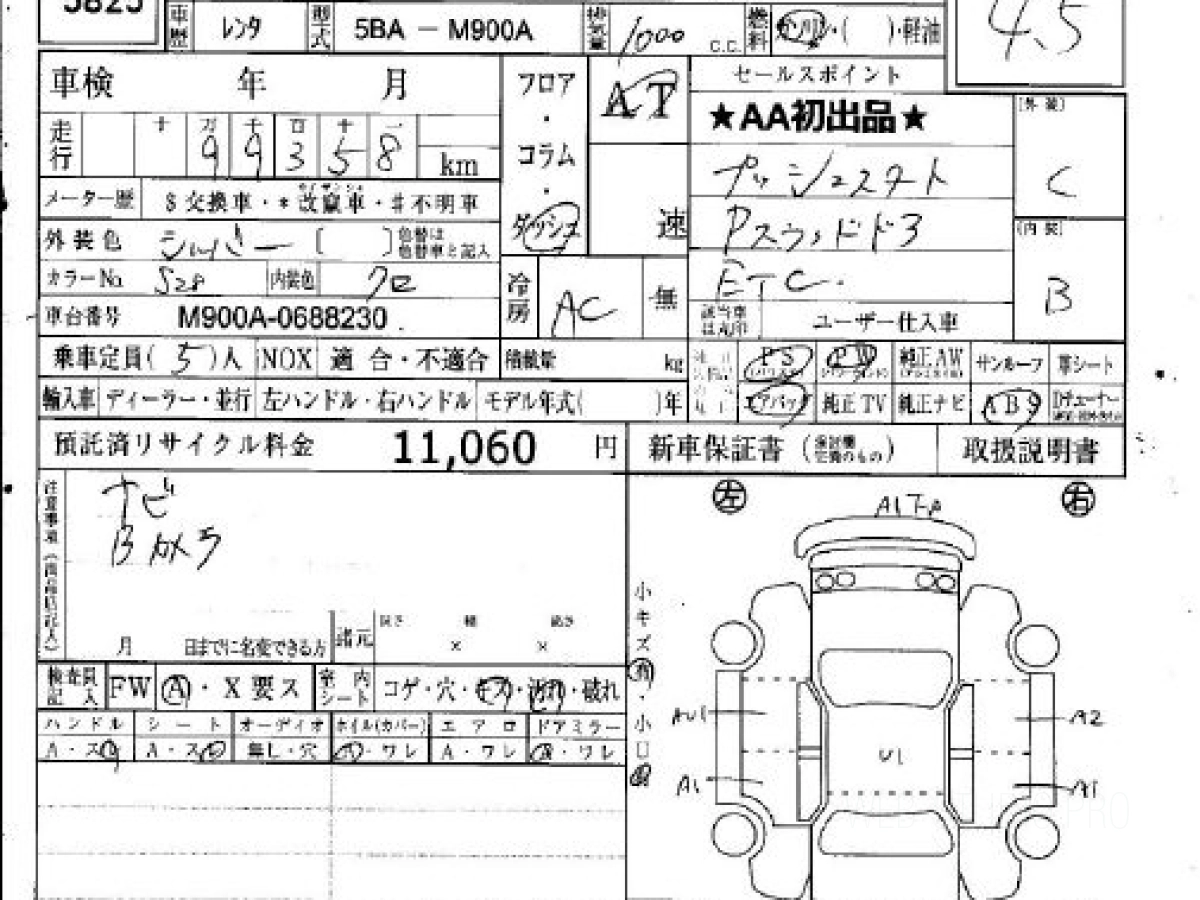 5825
車歴 レンタ 型式 5BA － M900A 排気量 1000 C.C. 燃料 ガソリン・( )・軽油
4.5
車検 年 月
フロア・コラム・ダッシュ
AT
速
セールスポイント
★AA初出品★
プッシュスタート
Pスライドドア
ETC.
[外装]
C
[内装]
B
走行 十 万 千 百 十 一
9 9 3 5 8 km
メーター歴 $交換車・*改竄車・#不明車
外装色 シルバー [ ] 色替は色替車と記入
カラーNo. S28 内装色 クロ
冷房 AC 無
該当車は丸印 ユーザー仕入車
車台番号 M900A-0688230
乗車定員( 5 )人 NOX 適合・不適合 積載量 kg
PS PW 純正AW サンルーフ 革シート
輸入車 ディーラー・並行 左ハンドル・右ハンドル モデル年式( )年
エアバッグ 純正TV 純正ナビ ABS Dチューナー
預託済リサイクル料金 11,060 円
新車保証書 取扱説明書
ナビ
Bカメラ
月 日までに名変できる方 諸元 長さ × 幅 × 高さ
検査員記入 FW A・X要ス 室内シート コゲ・穴・キズ・汚れ・破れ
ハンドル シート オーディオ ホイル(カバー) エアロ ドアミラー
A・スレ A・スレ 無し・穴 A・ワレ A・ワレ A・ワレ
小キズ有・小凹
左 右
AU1 A2
U1
A1 A1